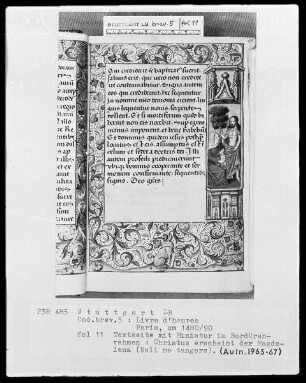 STUTTGART LB brev. 5 fol 11
Qui crediderit et baptizatus fuerit
salvus erit: qui vero non crediderit
condemnabitur. Signa autem
eos qui crediderint hec sequentur
In nomine meo demonia eicient: lin
guis loquentur novis: serpentes
tollent. Et si mortiferum quid biberint
non eis nocebit. Super egros
manus imponent et bene habebunt
Et dominus quidem iesus postquam
locutus est eis assumptus est celum
Et sedet a dextris dei: Illi
autem profecti predicaverunt
ubique domino cooperante et ser
monem confirmante: sequentibus
signis. Deo gratias
238 485 Stuttgart LB
Cod.brev.5 : Livre d'heures
Paris, um 1480/90
fol 11 Textseite mit Miniatur in Bordüren-
rahmen : Christus erscheint der Magda-
lena (Noli me tangere). (Autn. 1963-67)